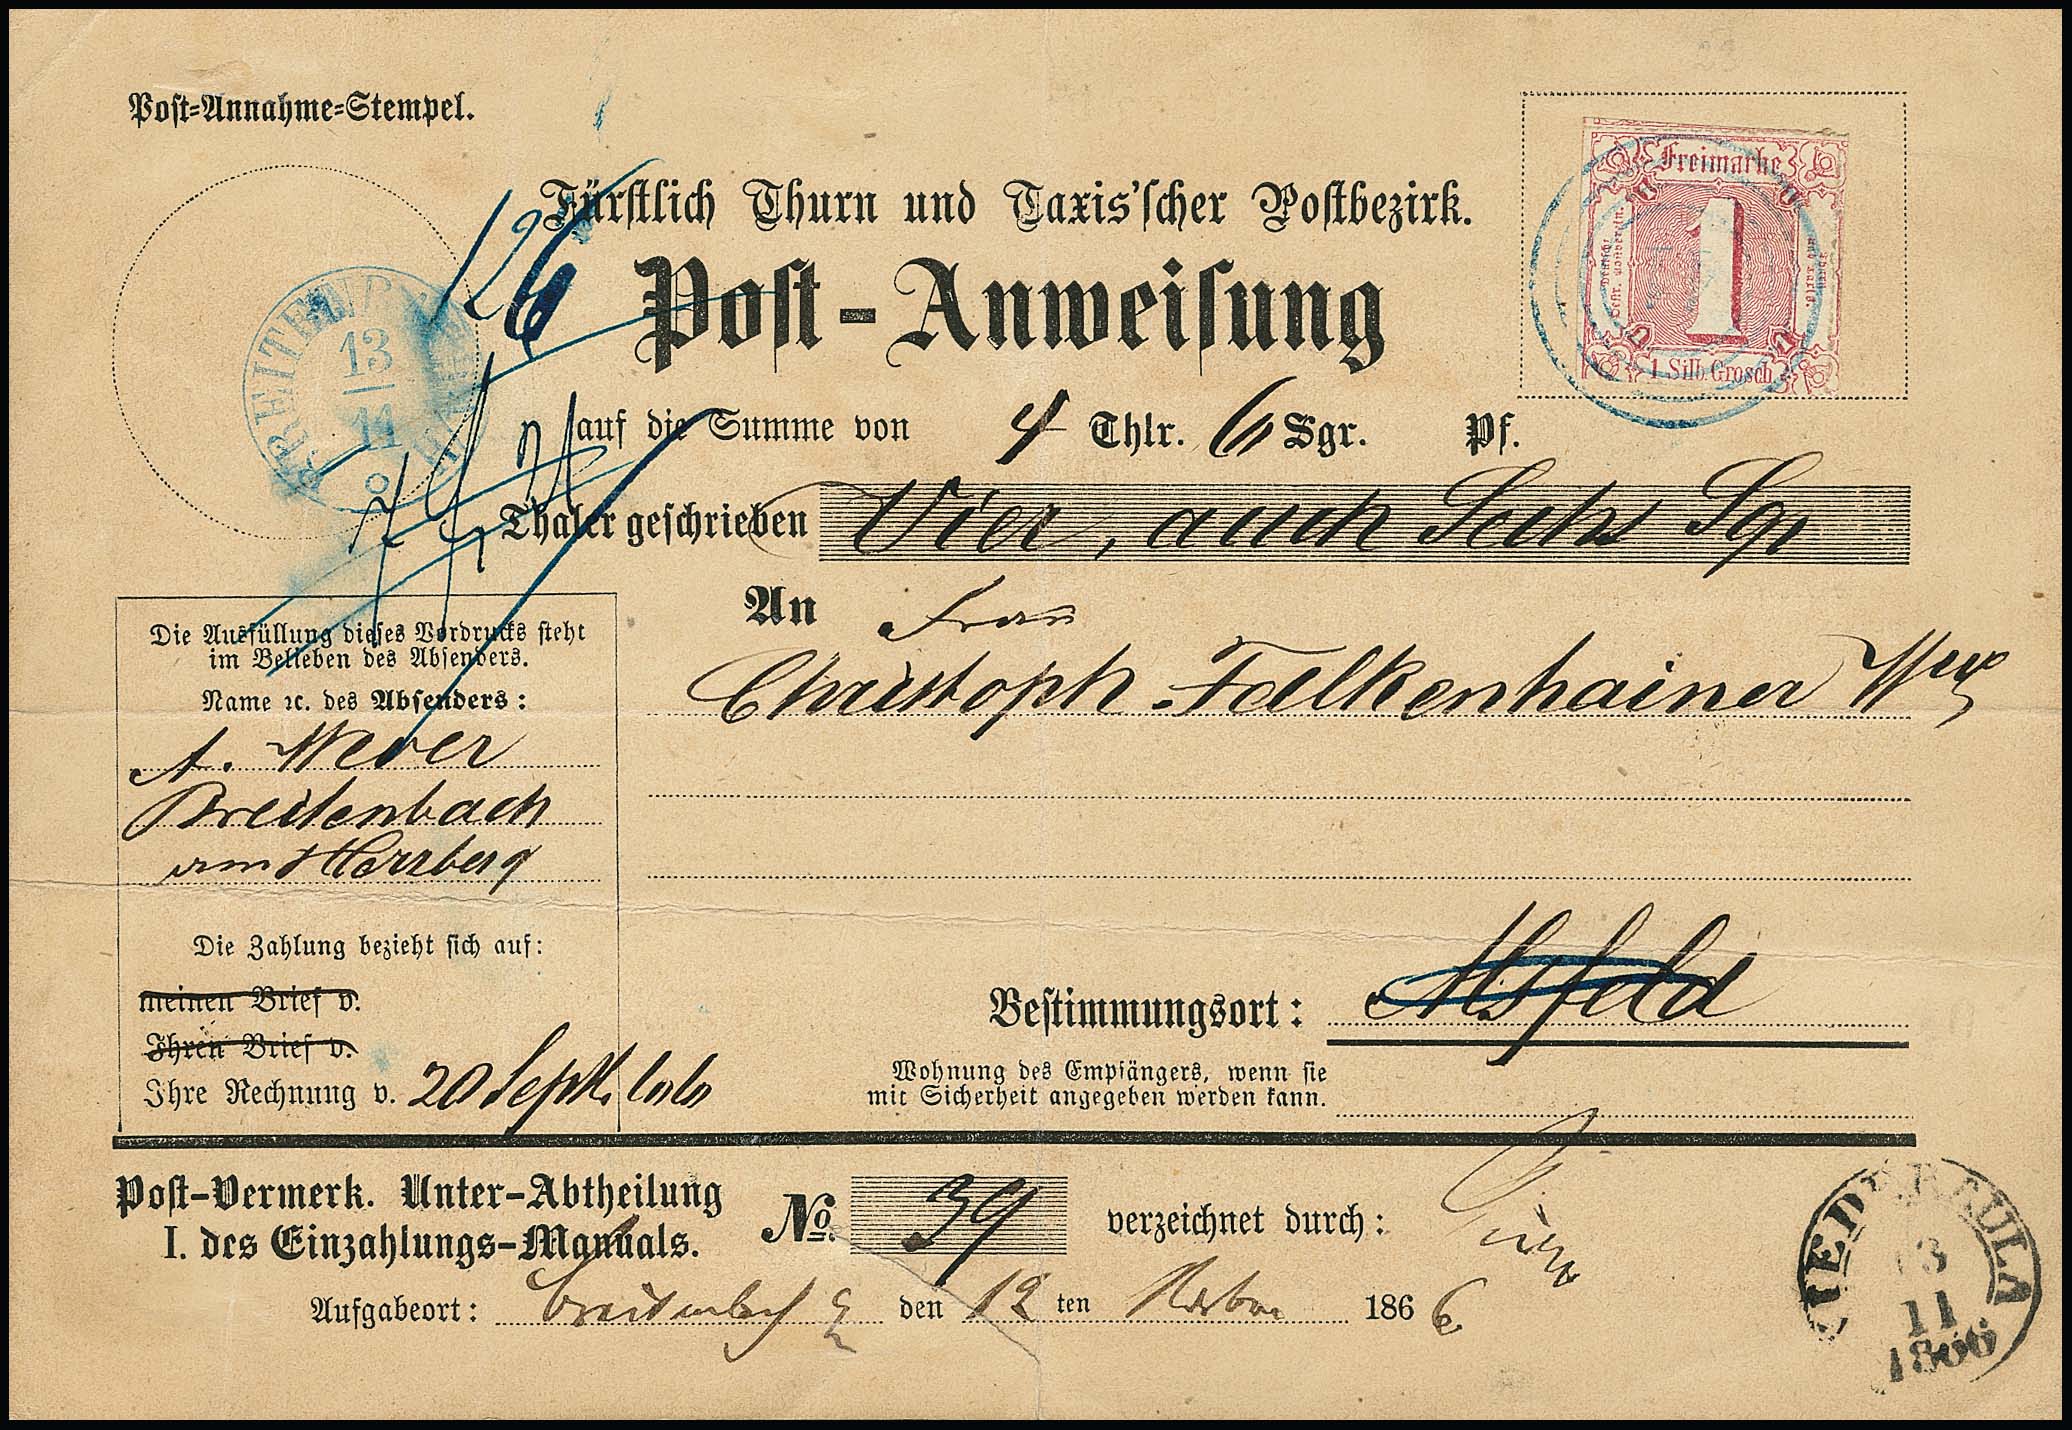 Post-Annahme-Stempel.
Fürstlich Thurn und Taxis'scher Postbezirk.
Post-Anweisung
Freimarke
1
1 Silb. Grosch
BREITENB
13
11
126
auf die Summe von 4 Thlr. 6 Sgr. Pf.
Thaler geschrieben Vier, auch Sechs Sgr
An Frau
Christoph Falkenhainer Wwe
Die Ausfüllung dieses Vordrucks steht
im Belieben des Absenders.
Name ꝛc. des Absenders:
A. Wever
Breitenbach
am Herzberg
Die Zahlung bezieht sich auf:
meinen Brief v.
Ihren Brief v.
Ihre Rechnung v. 20 Sept. 66
Bestimmungsort: Alsfeld
Wohnung des Empfängers, wenn sie
mit Sicherheit angegeben werden kann.
Post-Vermerk. Unter-Abtheilung
I. des Einzahlungs-Manuals.
No. 39 verzeichnet durch:
Aufgabeort: Breitenbach den 12 ten Novbr 1866
NIEDERAULA
13
11
1866